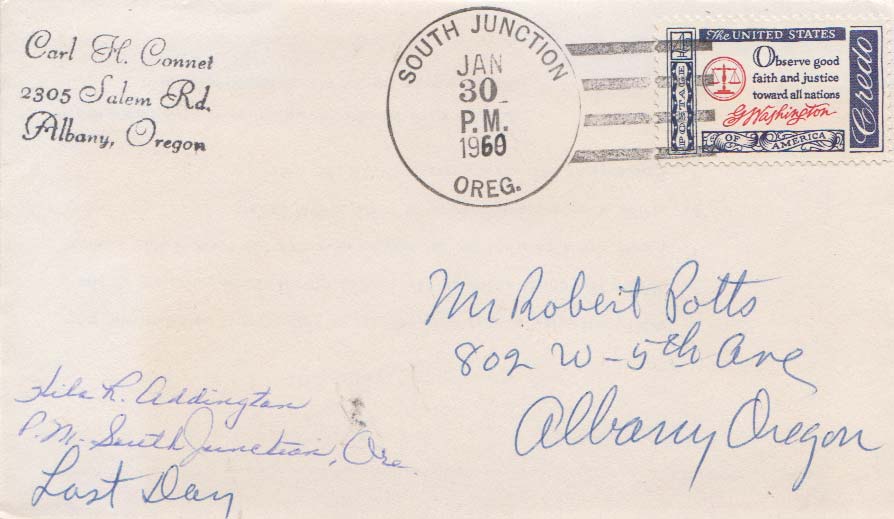 Carl H. Connet
2305 Salem Rd.
Albany, Oregon
SOUTH JUNCTION
JAN
30
P.M.
1960
OREG.
4¢
POSTAGE
The UNITED STATES
Observe good
faith and justice
toward all nations
G Washington
OF AMERICA
Credo
Mr Robert Potts
802 W - 5th Ave
Albany Oregon
Hila R. Addington
P.M. South Junction, Ore.
Last Day